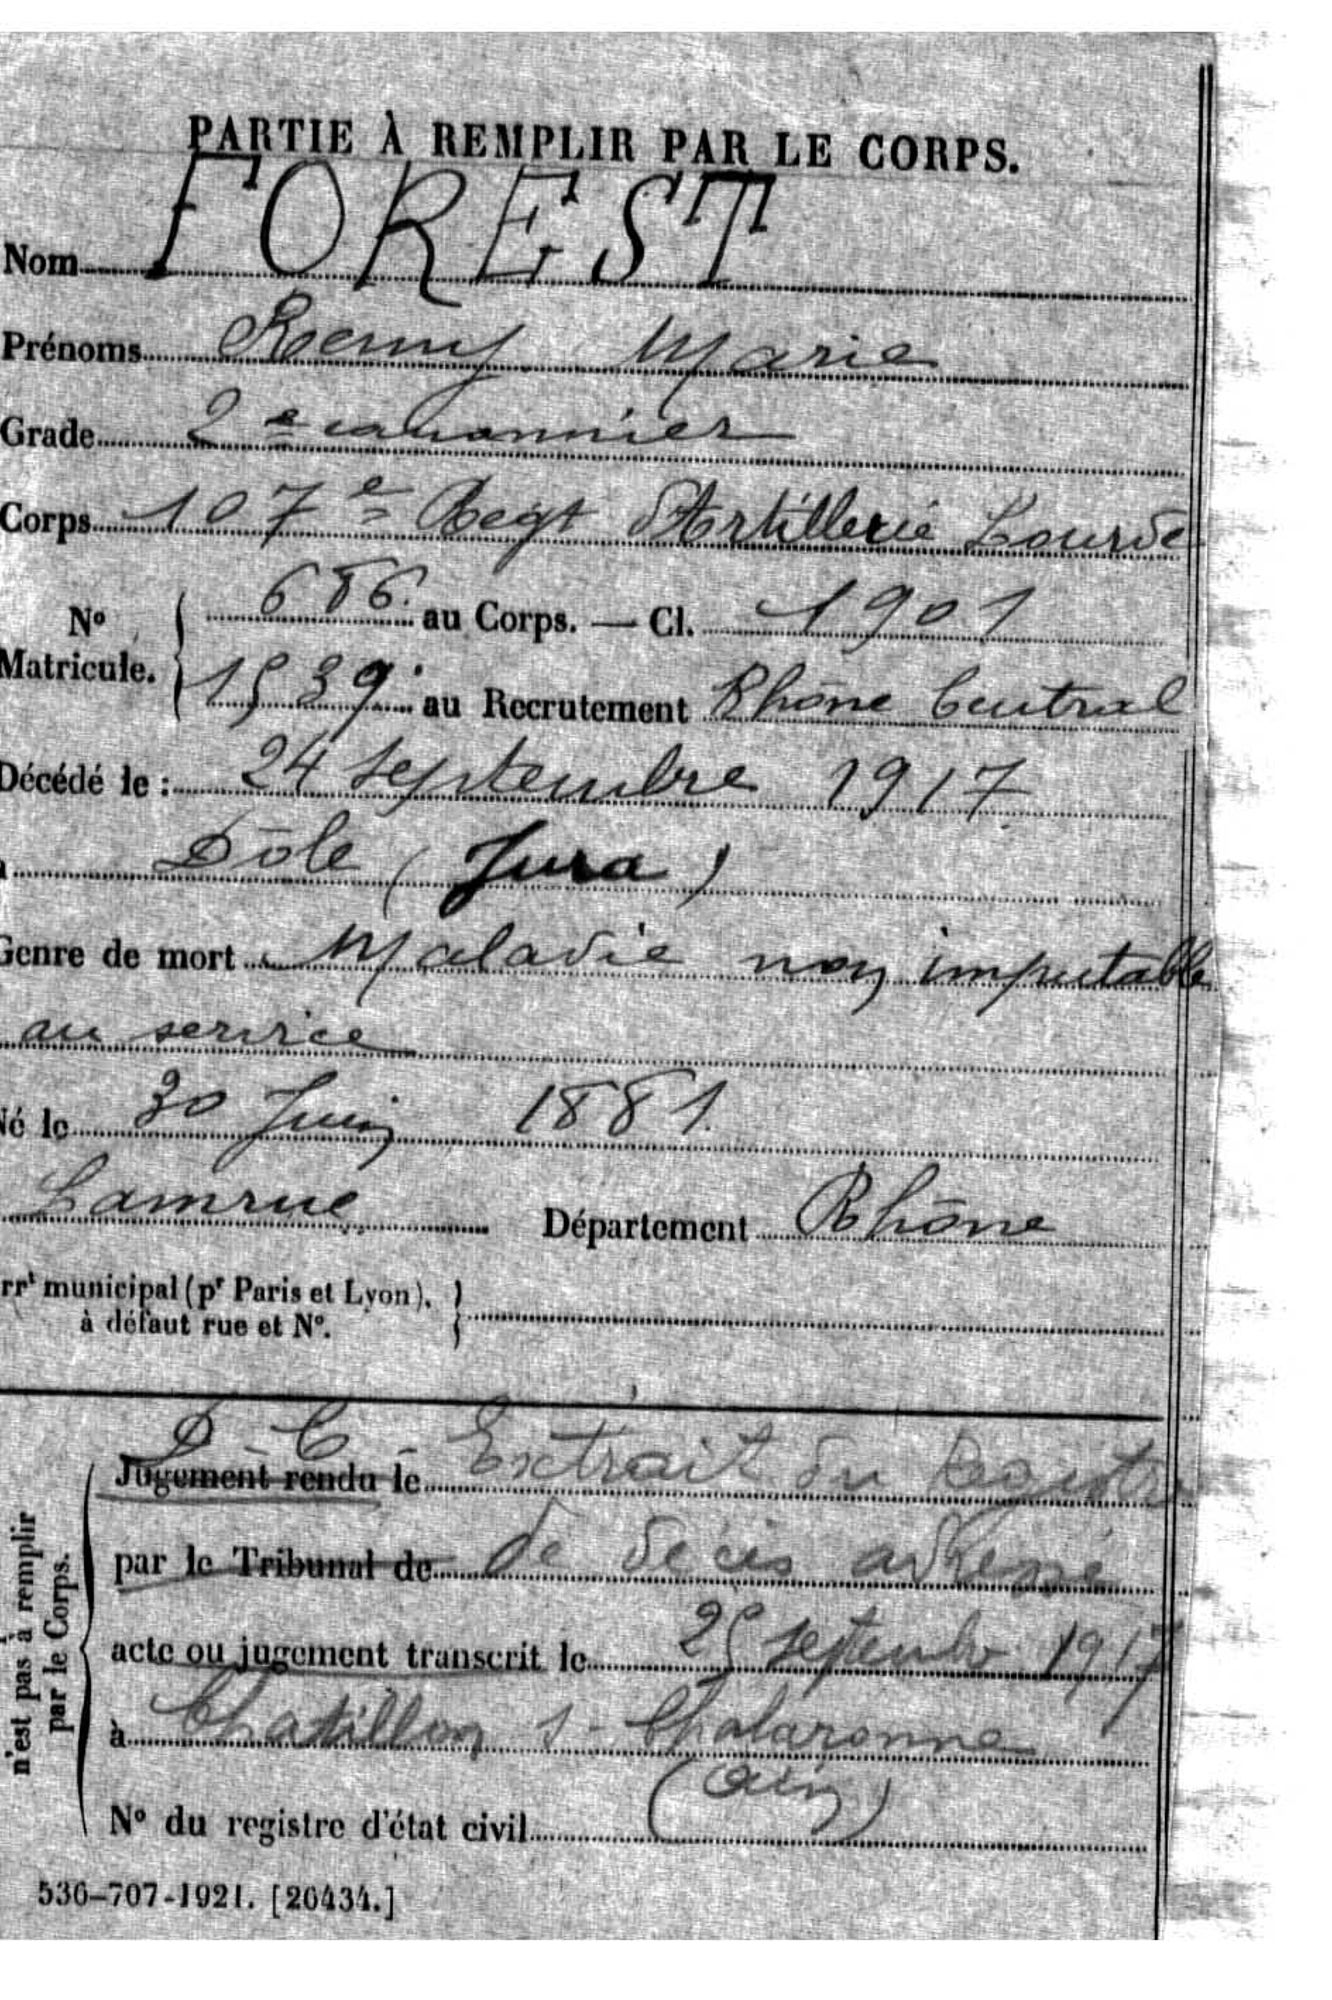 PARTIE À REMPLIR PAR LE CORPS.
Nom FOREST
Prénoms Remy Marie
Grade 2e canonnier
Corps 107e Regt d'Artillerie Lourde
N° Matricule. 686. au Corps. — Cl. 1901
1539. au Recrutement Rhône Central
Décédé le : 24 septembre 1917
Dôle (Jura)
Genre de mort Maladie non imputable
au service
Né le 30 Juin 1881.
Lamrue Département Rhône
rrt municipal (pr Paris et Lyon),
à défaut rue et N°.
D - C - Extrait du Registre
Jugement rendu le
par le Tribunal de de décès adressé
acte ou jugement transcrit le 25 septembre 1917
à Chatillon s - Chalaronne
(Ain)
N° du registre d'état civil
n'est pas à remplir
par le Corps.
536-707-1921. [26434.]